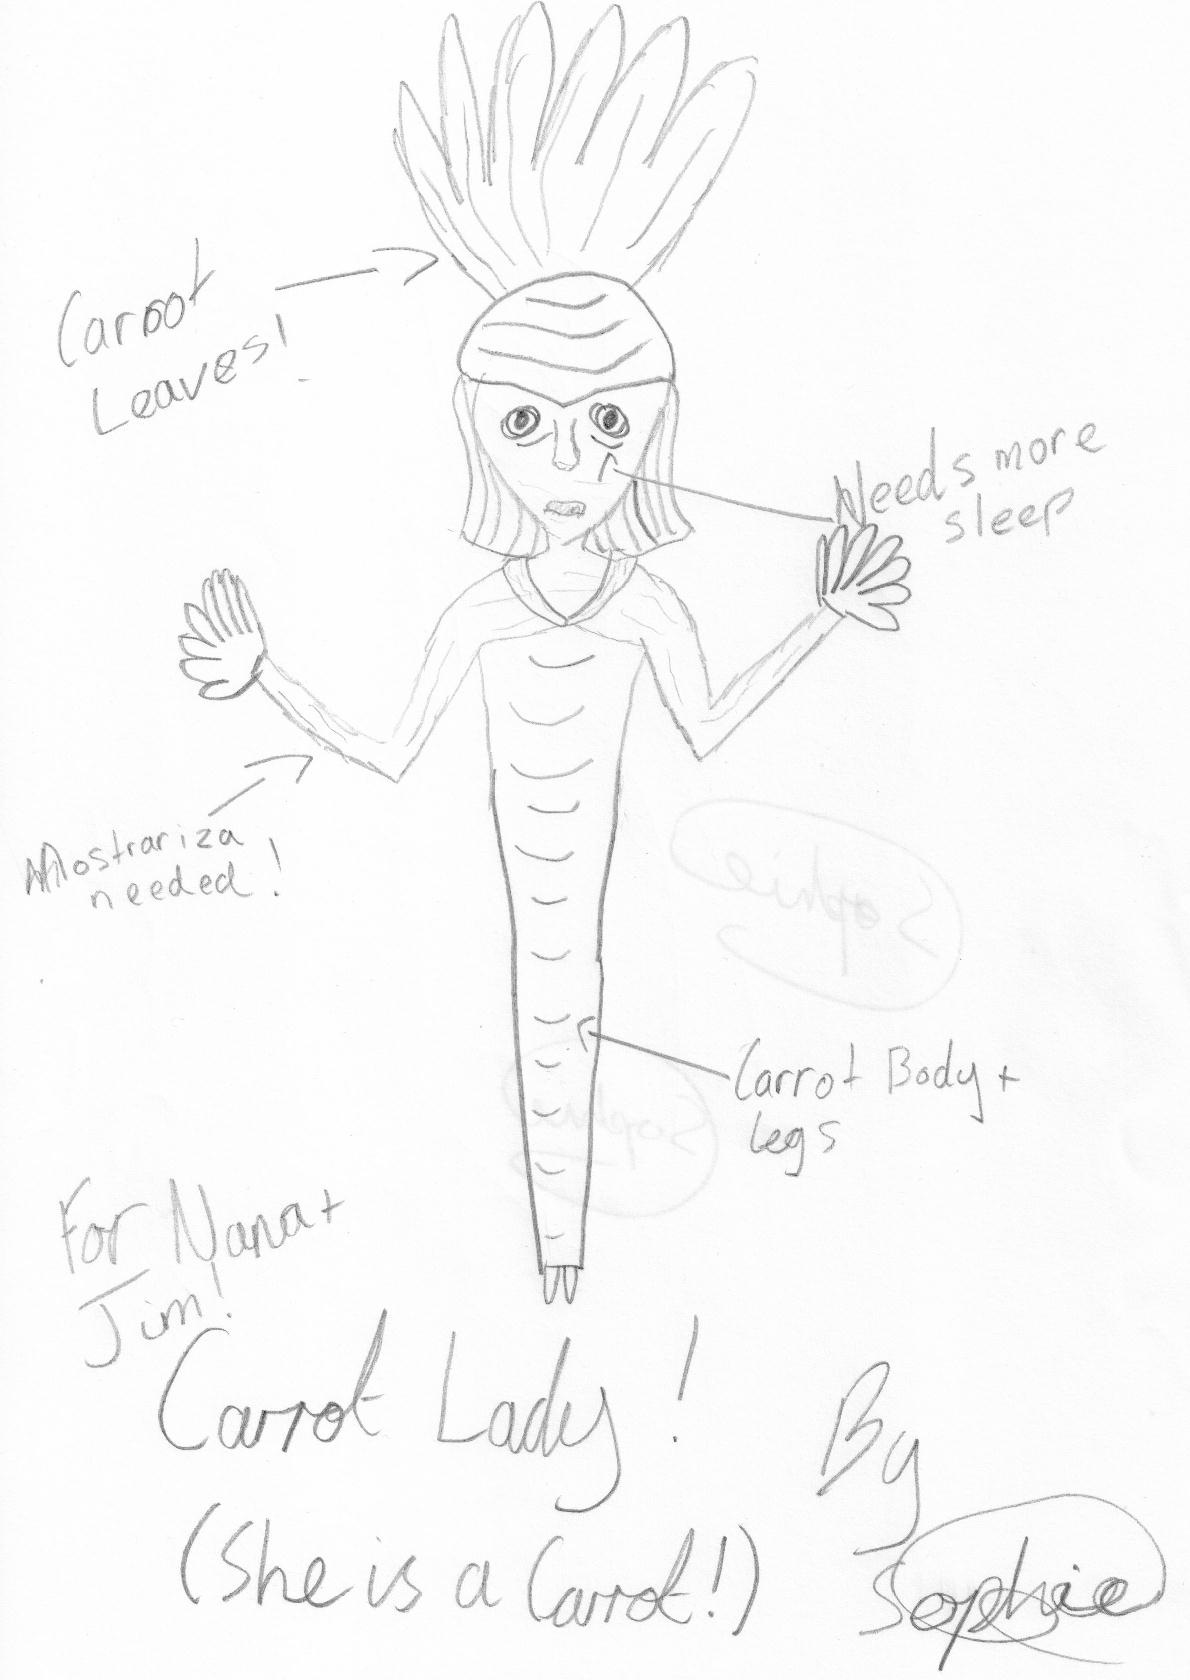 Carrot
Leaves!
Needs more
sleep
Mostrariza
needed!
Carrot Body +
legs
For Nana +
Jim!
Carrot Lady!
(She is a Carrot!)
By
Sophie
Sophie
Sophie